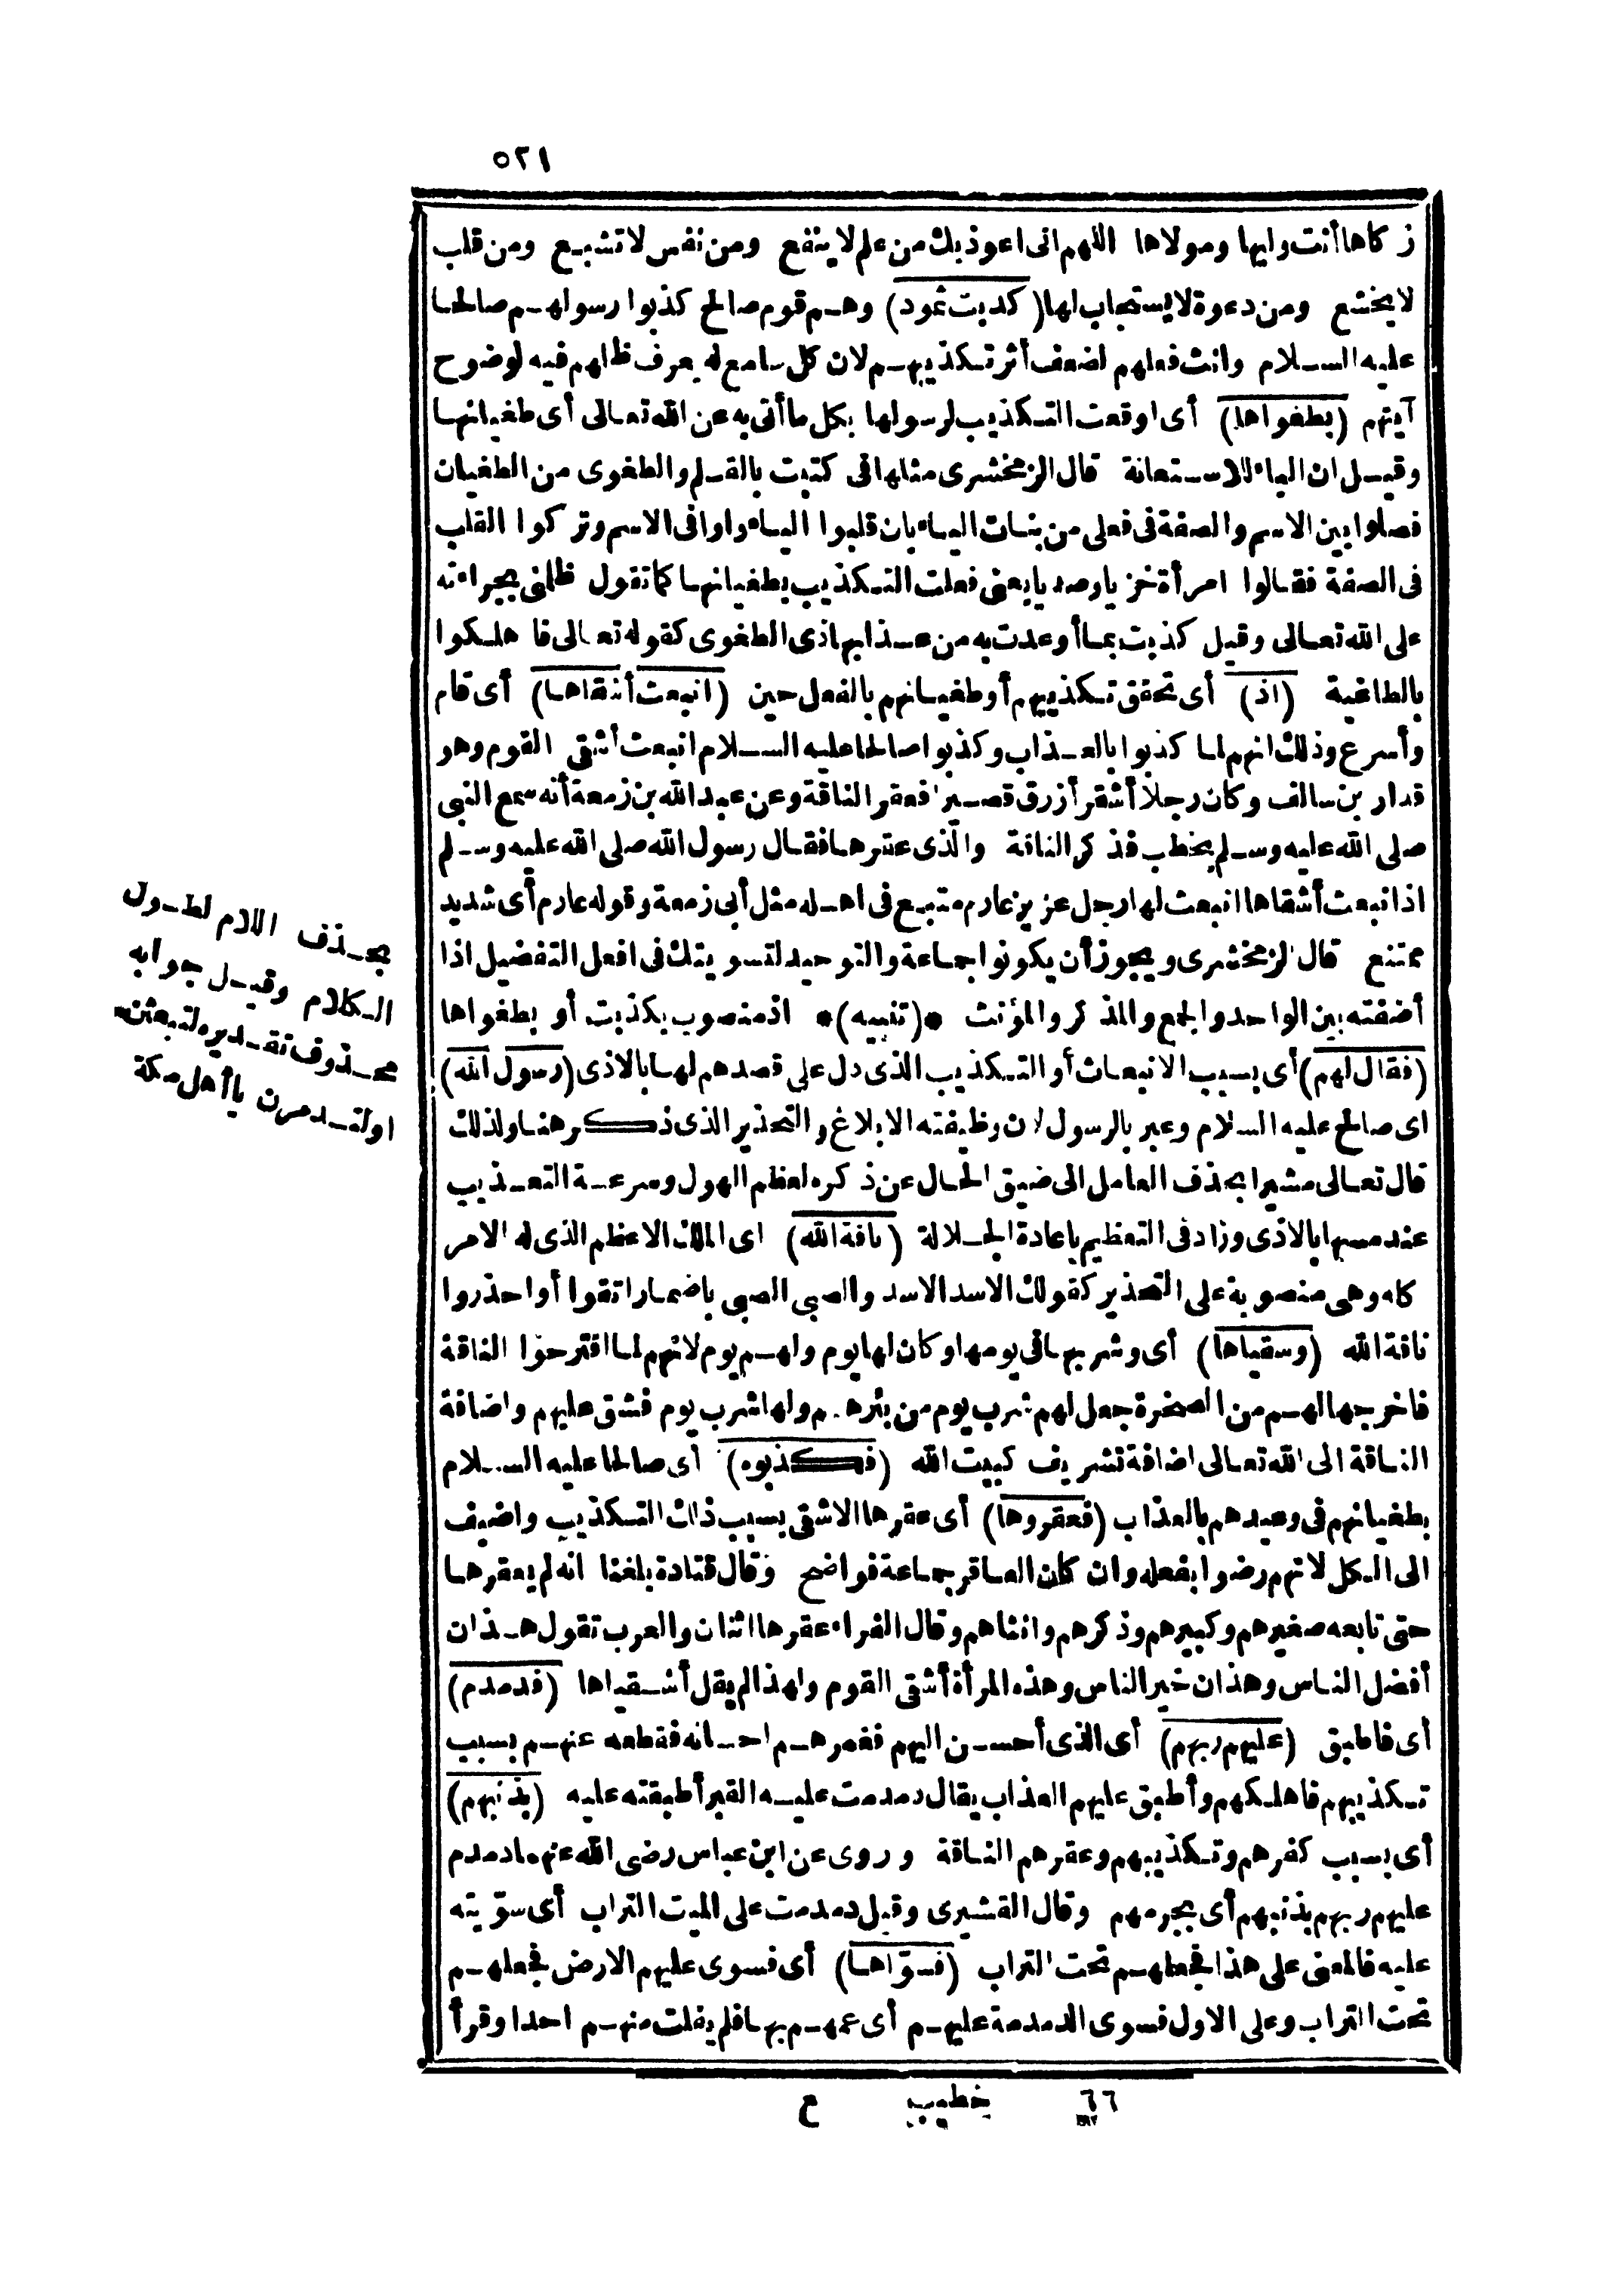 ٥٢١
زكاها أنت وليها ومولاها اللهم انى اعوذ بك من علم لا ينفع ومن نفس لا تشبع ومن قلب
لا يخشع ومن دعوة لا يستجاب لها (كذبت ثمود) وهم قوم صالح كذبوا رسولهم صالحا
عليه السلام وانث فعلهم لضعف أثر تكذيبهم لان كل سامع له يعرف ظلمهم فيه لوضوح
آيتهم (بطغواها) أى اوقعت التكذيب لرسولها بكل ما أتى به عن الله تعالى أى طغيانها
وقيل ان الباء للاستعانة قال الزمخشرى مثلها فى كتبت بالقلم والطغوى من الطغيان
فصلوا بين الاسم والصفة فى فعلى من بنات الياء بان قلبوا الياء واوا فى الاسم وتركوا القلب
فى الصفة فقالوا امرأة خزيا وصديا يعنى فعلت التكذيب بطغيانها كما تقول ظلمنى بجراءته
على الله تعالى وقيل كذبت بما أوعدت به من عذابها ذى الطغوى كقوله تعالى فاهلكوا
بالطاغية (اذ) أى تحقق تكذيبهم أو طغيانهم بالفعل حين (انبعث أشقاها) أى قام
وأسرع وذلك انهم لما كذبوا بالعذاب وكذبوا صالحا عليه السلام انبعث أشقى القوم وهو
قدار بن سالف وكان رجلا أشقر أزرق قصيرا فعقر الناقة وعن عبد الله بن زمعة أنه سمع النبى
صلى الله عليه وسلم يخطب فذكر الناقة والذى عقرها فقال رسول الله صلى الله عليه وسلم
اذ انبعث أشقاها انبعث لها رجل عزيز عارم متبع فى اهله مثل أبى زمعة وقوله عارم أى شديد
ممتنع قال الزمخشرى ويجوز أن يكونوا جماعة والتوحيد لتسويتك فى افعل التفضيل اذا
أضفته بين الواحد والجمع والمذكر والمؤنث *(تنبيه)* اذ منصوب بكذبت أو بطغواها
(فقال لهم) أى بسبب الانبعاث أو التكذيب الذى دل على قصدهم لها بالاذى (رسول الله)
اى صالح عليه السلام وعبر بالرسول لان وظيفته الابلاغ والتحذير الذى ذكر هنا ولذلك
قال تعالى مشيرا بحذف العامل الى ضيق الحال عن ذكره لعظم الهول وسرعة التعذيب
عند مسها بالاذى وزاد فى التعظيم باعادة الجلالة (ناقة الله) اى الملك الاعظم الذى له الامر
كله وهى منصوبة على التحذير كقولك الاسد الاسد والصبى الصبى باضمار اتقوا أو احذروا
ناقة الله (وسقياها) أى وشربها فى يومها وكان لها يوم ولهم يوم لانهم لما اقترحوا الناقة
فاخرجها لهم من الصخرة جعل لهم شرب يوم من بئرهم ولها شرب يوم فشق عليهم واضافة
الناقة الى الله تعالى اضافة تشريف كبيت الله (فكذبوه) أى صالحا عليه السلام
بطغيانهم فى وعيدهم بالعذاب (فعقروها) أى عقرها الاشقى بسبب ذلك التكذيب واضيف
الى الكل لانهم رضوا بفعله وان كان العاقر جماعة فواضح وقال قتادة بلغنا انه لم يعقرها
حتى تابعه صغيرهم وكبيرهم وذكرهم وانثاهم وقال الفراء عقرها اثنان والعرب تقول هذان
أفضل الناس وهذان خير الناس وهذه المرأة أشقى القوم ولهذا لم يقل أشقياها (فدمدم)
أى فاطبق (عليهم ربهم) أى الذى أحسن اليهم فغمرهم احسانه فقطعه عنهم بسبب
تكذيبهم فاهلكهم وأطبق عليهم العذاب يقال دمدمت عليه القبر أطبقته عليه (بذنبهم)
أى بسبب كفرهم وتكذيبهم وعقرهم الناقة وروى عن ابن عباس رضى الله عنهما دمدم
عليهم ربهم بذنبهم أى بجرمهم وقال القشيرى وقيل دمدمت على الميت التراب أى سوّيته
عليه فالمعنى على هذا فجعلهم تحت التراب (فسوّاها) أى فسوى عليهم الارض فجعلهم
تحت التراب وعلى الاول فسوى الدمدمة عليهم أى عمهم بها فلم يفلت منهم احدا وقرأ
بحذف اللام لطول
الكلام وقيل جوابه
محذوف تقديره لتبعثن
او لتدمرن يا أهل مكة
٦٦ خطيب ع